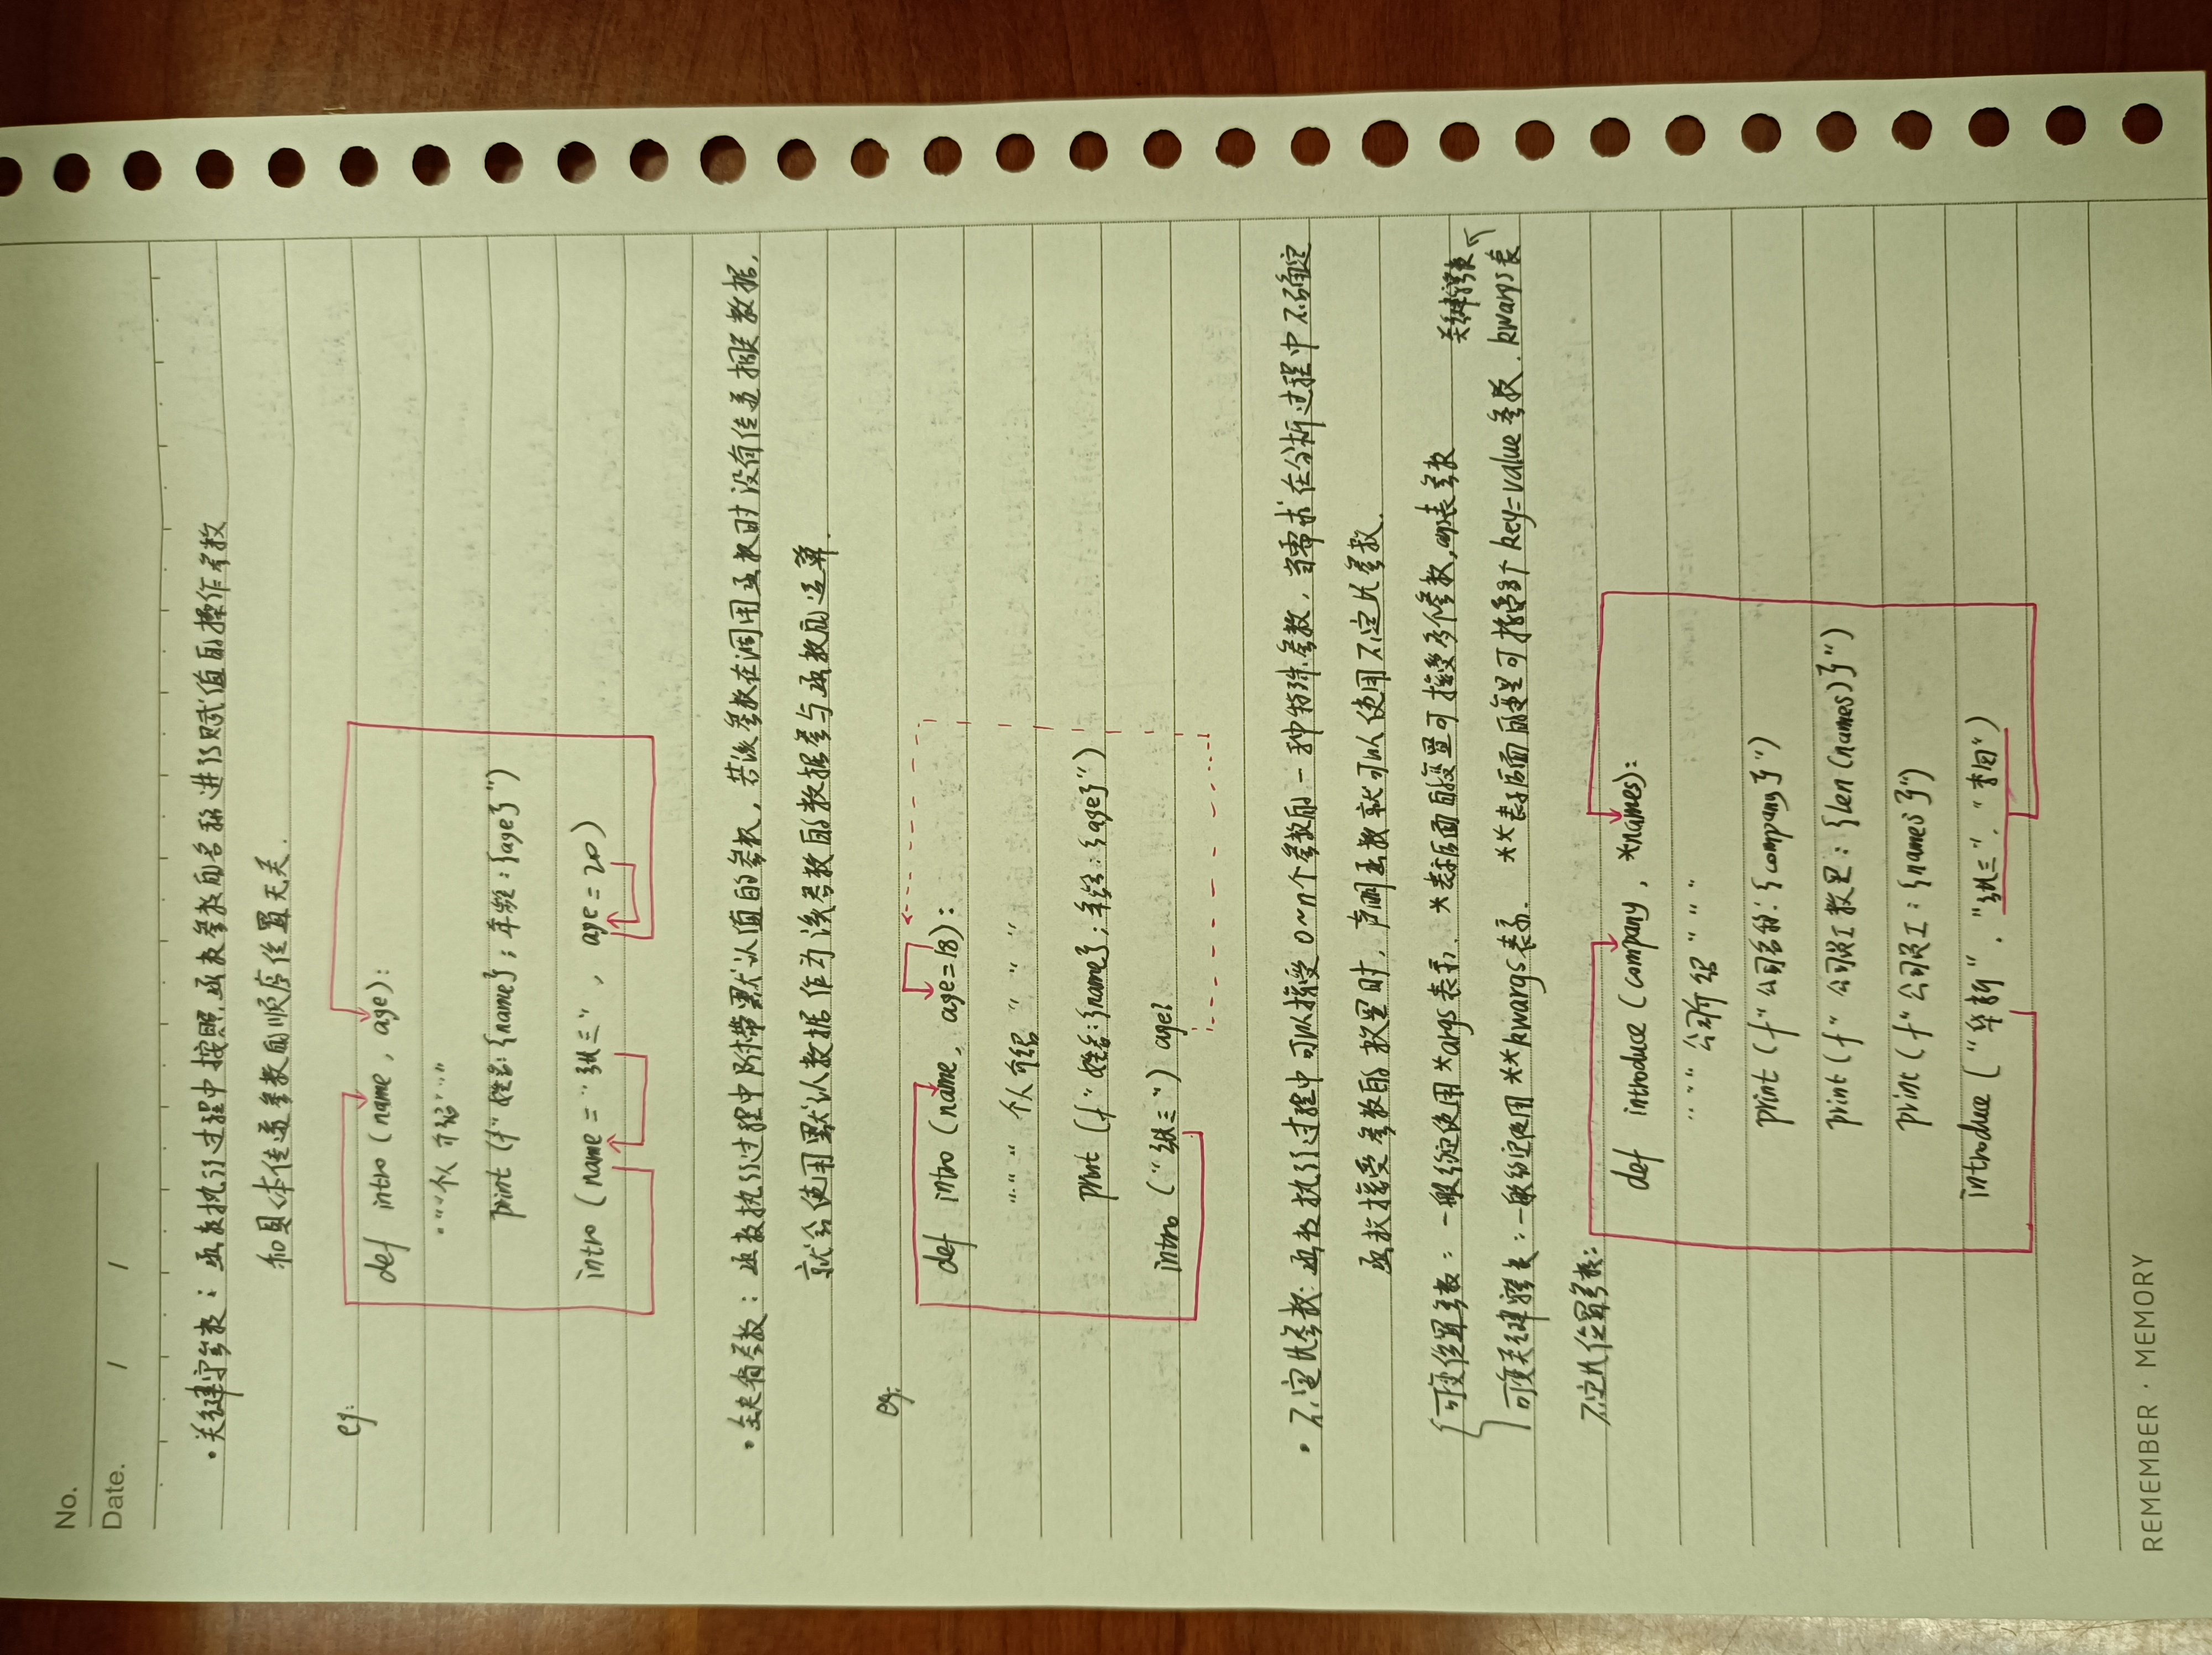 No.
Date. / /
·关键字参数：函数执行过程中按照函数参数的名称进行赋值的操作参数
和具体传递参数的顺序位置无关.
eg:
def intro (name, age):
"""个人介绍"""
print (f"姓名:{name}；年龄:{age}")
intro (name = "张三", age = 20)
·缺省参数：函数执行过程中附带默认值的参数，若该参数在调用函数时没有传递相关数据，
就会使用默认数据作为该参数的数据参与函数的运算.
eg:
def intro (name, age=18):
"""个人介绍"""
print (f"姓名:{name}；年龄:{age}")
intro ("张三") age?
·不定长参数：函数执行过程中可以接受0~n个参数的一种特殊参数，当需求在分析过程中不确定
函数接受参数的数量时，声明函数就可以使用不定长参数.
可变位置参数：一般约定使用*args表示. *表示后面的变量可接受多个参数,args表参数
关键字参数
可变关键字参数：一般约定使用**kwargs表示. **表示后面的变量可接受多个key=value参数. kwargs表
不定长位置参数：
def introduce (company, *names):
"""公司介绍"""
print (f"公司名称:{company}")
print (f"公司员工数量:{len(names)}")
print (f"公司员工:{names}")
introduce ("华新", "张三", "李四")
REMEMBER · MEMORY